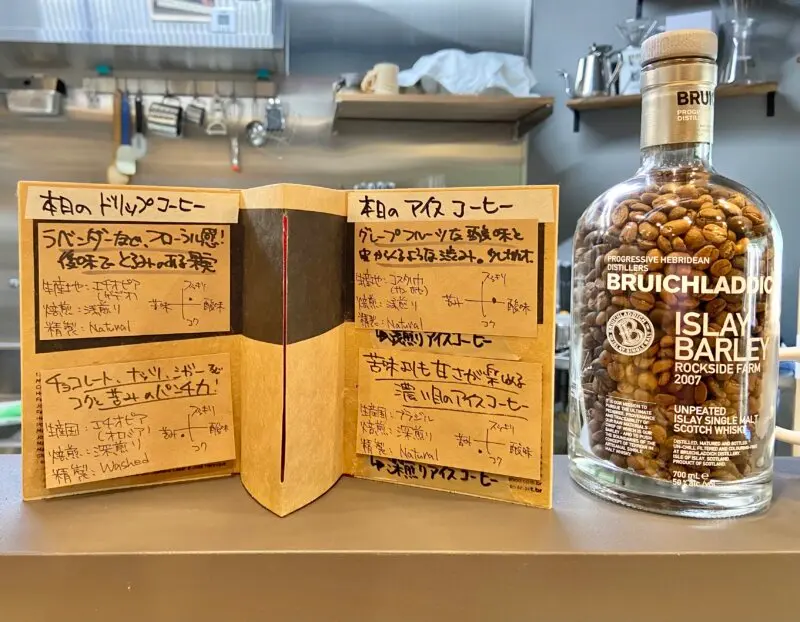 本日のドリップコーヒー
ラベンダーなど、フローラル感!
後味でとろみのある果実
生産地:エチオピア
焙煎:浅煎り
精製:Natural
スッキリ
苦味
酸味
コク
チョコレート、ナッツ、シガーなど
コクと苦みのパンチ力!
生産国:エチオピア
焙煎:深煎り
精製:Washed
スッキリ
苦み
酸味
コク
本日のアイスコーヒー
グレープフルーツな酸味と
生産地:コスタリカ
焙煎:浅煎り
精製:Natural
スッキリ
苦み
酸味
コク
深煎りアイスコーヒー
苦味よりも甘さが楽しめる
濃い目のアイスコーヒー
生産国:ブラジル
焙煎:深煎り
精製:Natural
スッキリ
苦み
酸味
コク
深煎りアイスコーヒー
BRUI
PROG
DISTIL
PROGRESSIVE HEBRIDEAN
DISTILLERS
BRUICHLADDIC
ISLAY
BARLEY
ROCKSIDE FARM
2007
UNPEATED
ISLAY SINGLE MALT
SCOTCH WHISKY
700 mL e